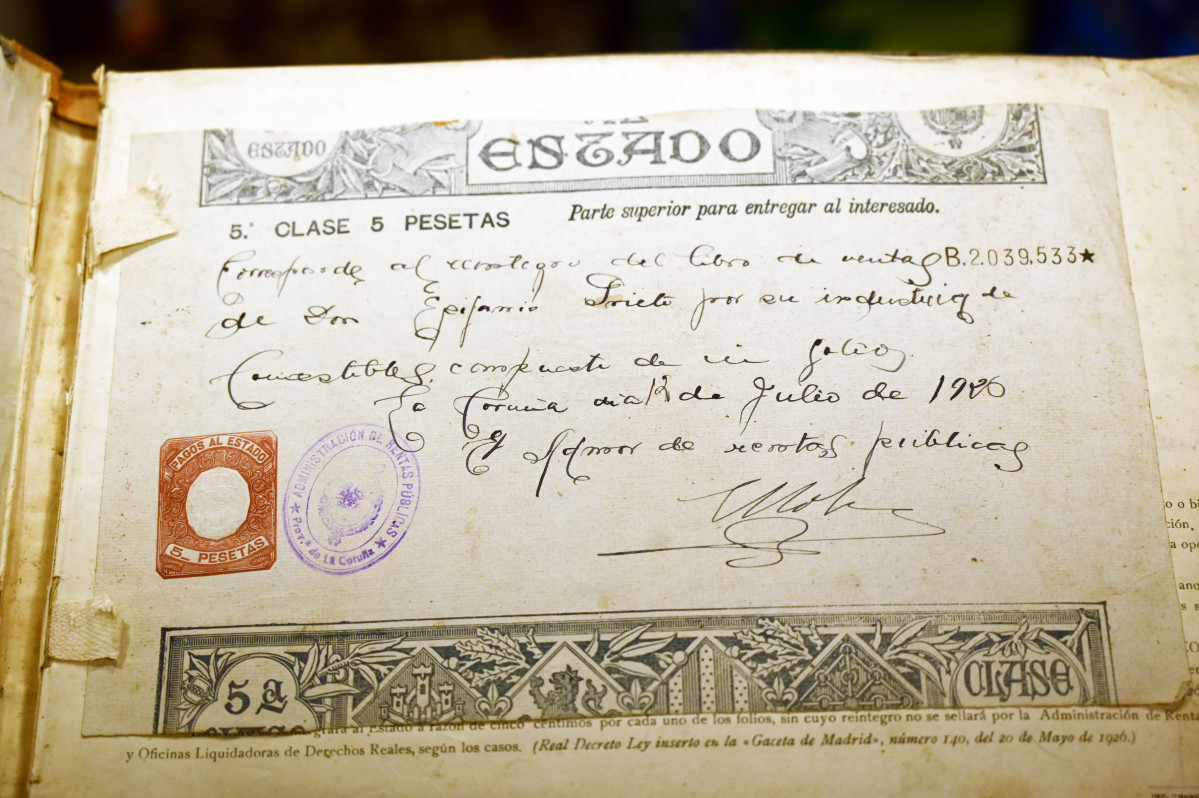 ESTADO
ESTADO
5.ª CLASE 5 PESETAS
Parte superior para entregar al interesado.
Corresponde al reintegro del libro de ventas B.2.039,533★
de Don Epifanio Prieto por su industria de
Comestibles, compuesto de un folios
La Coruña día 12 de Julio de 1926
El Admor de rentas públicas
PAGOS AL ESTADO
5_ PESETAS
★ ADMINISTRACIÓN DE RENTAS PÚBLICAS ★
Prov.ª de LA Coruña
5.ª
CLASE
CLASE
grará al Estado a razón de cinco céntimos por cada uno de los folios, sin cuyo reintegro no se sellará por la Administración de Rent
y Oficinas Liquidadoras de Derechos Reales, según los casos. (Real Decreto Ley inserto en la «Gaceta de Madrid», número 140, del 20 de Mayo de 1926.)
o o bi
ción,
a ope